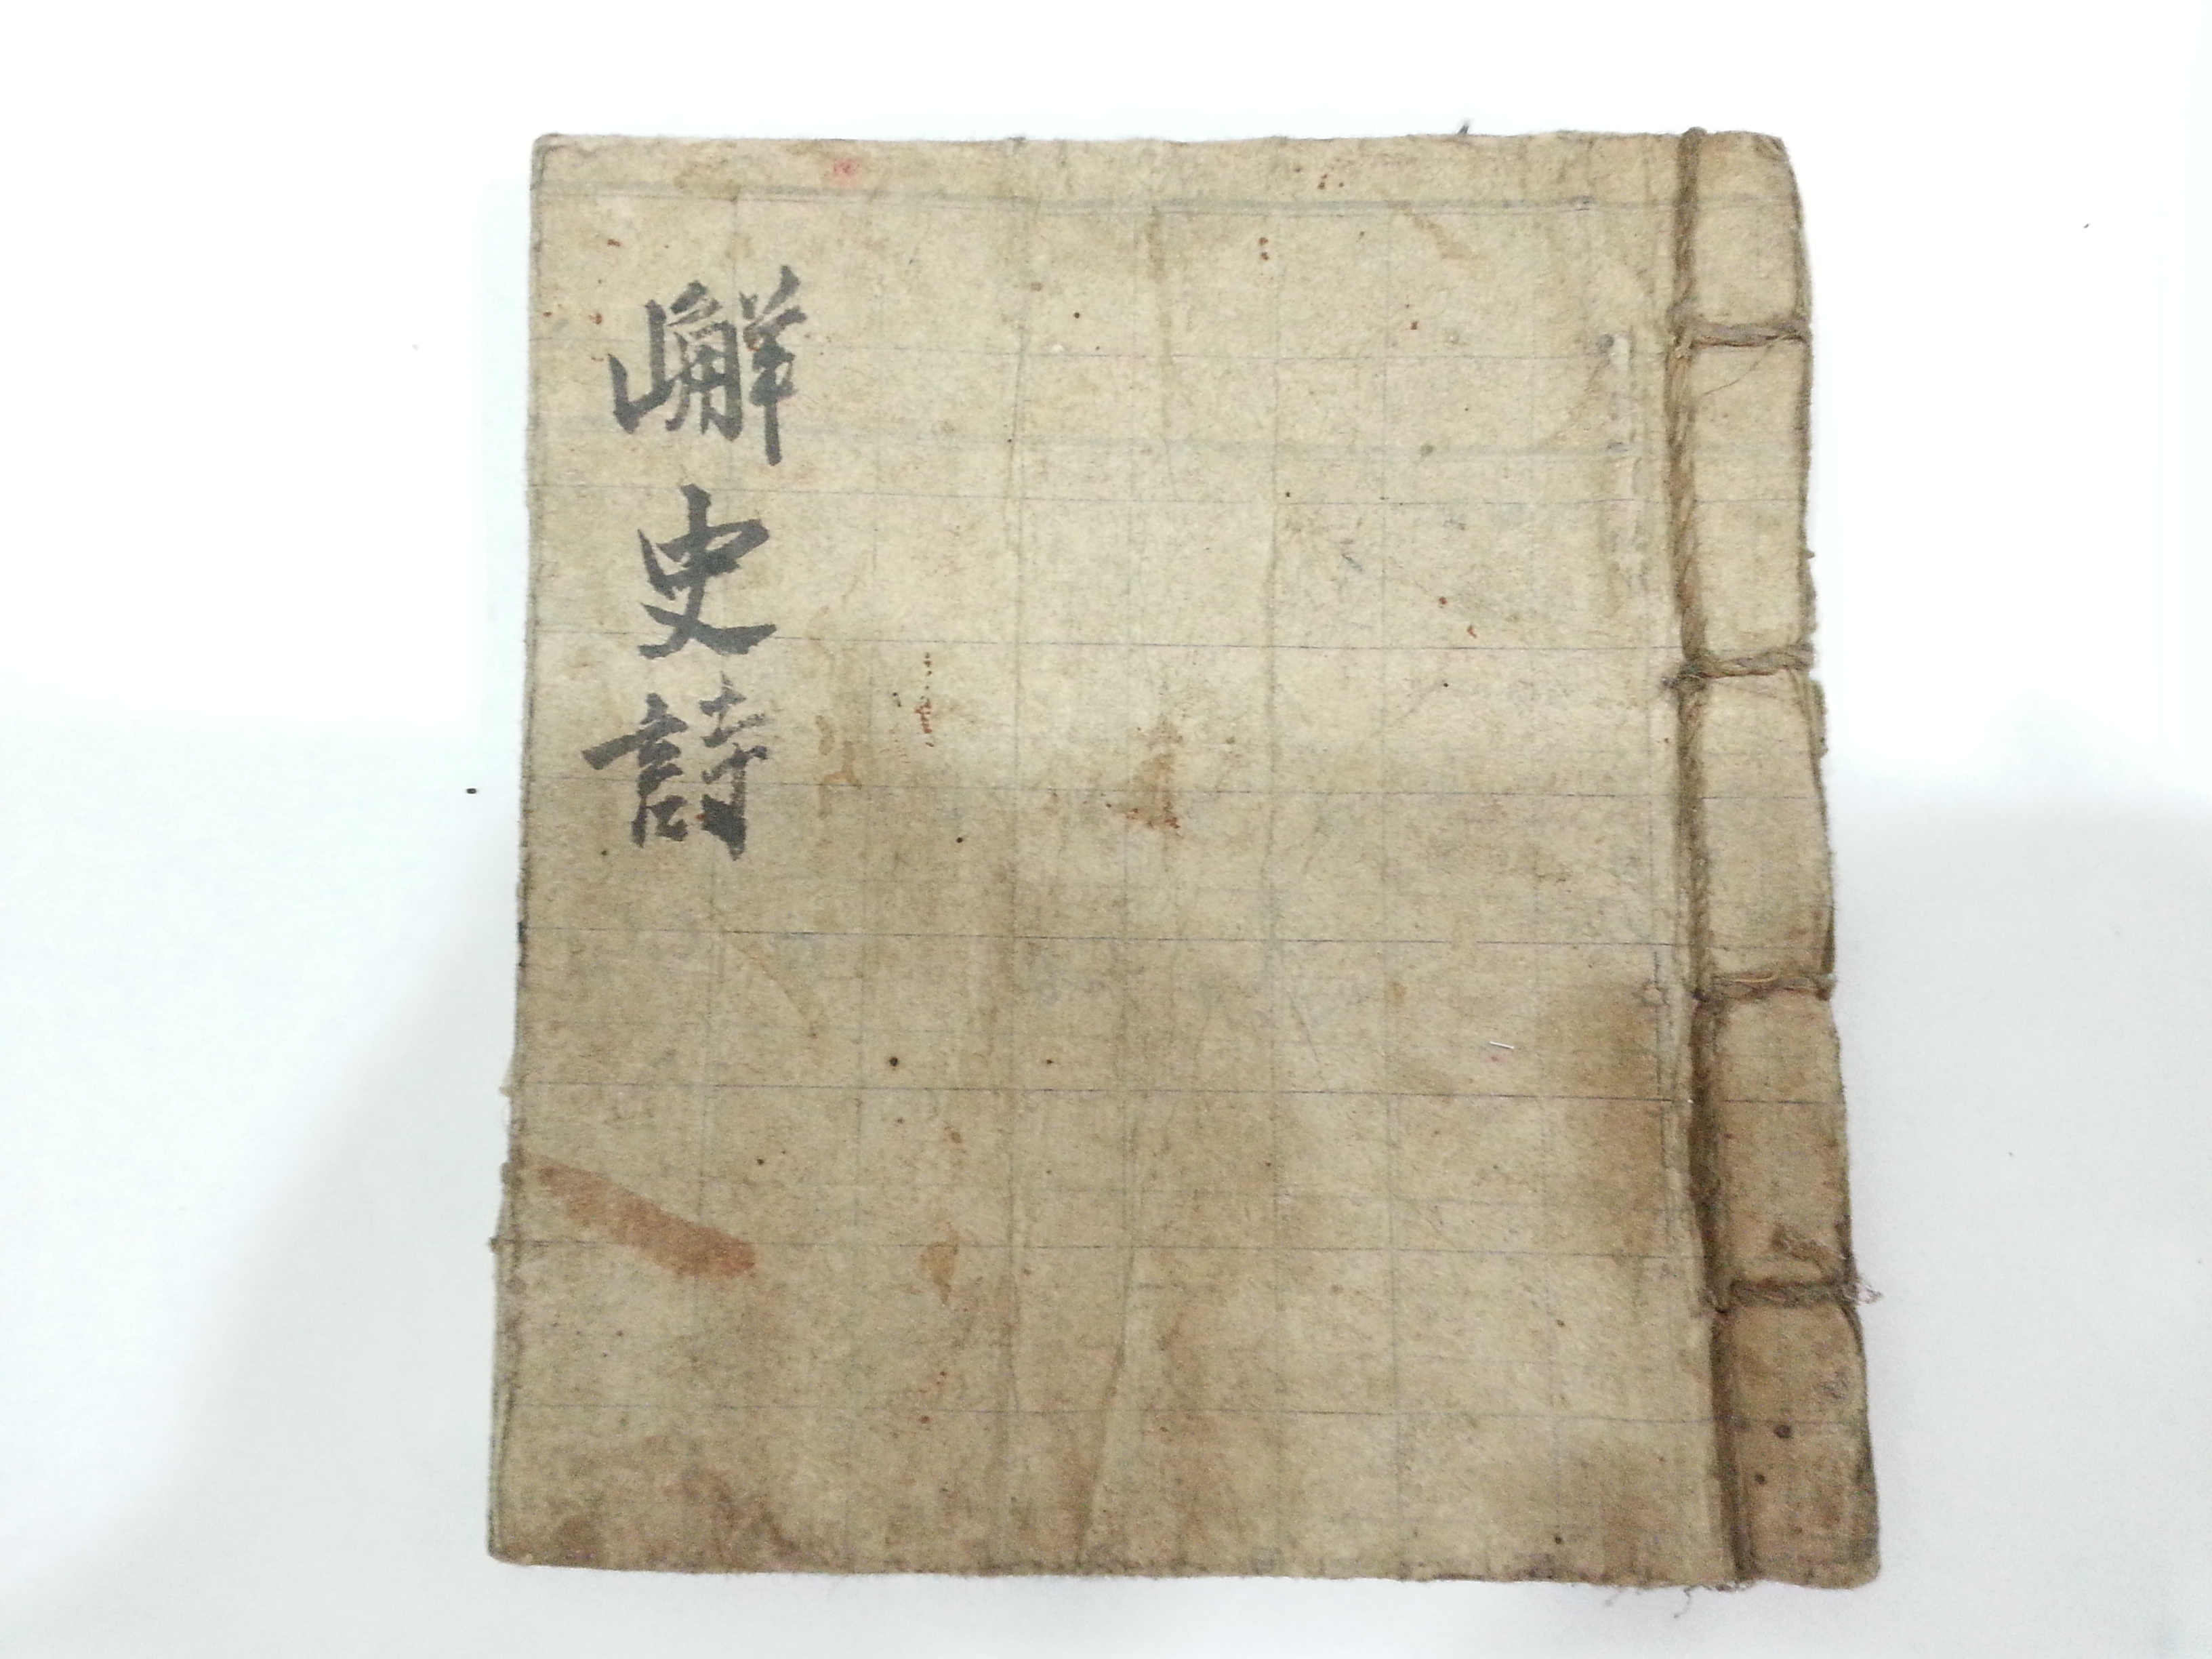 嶰史詩